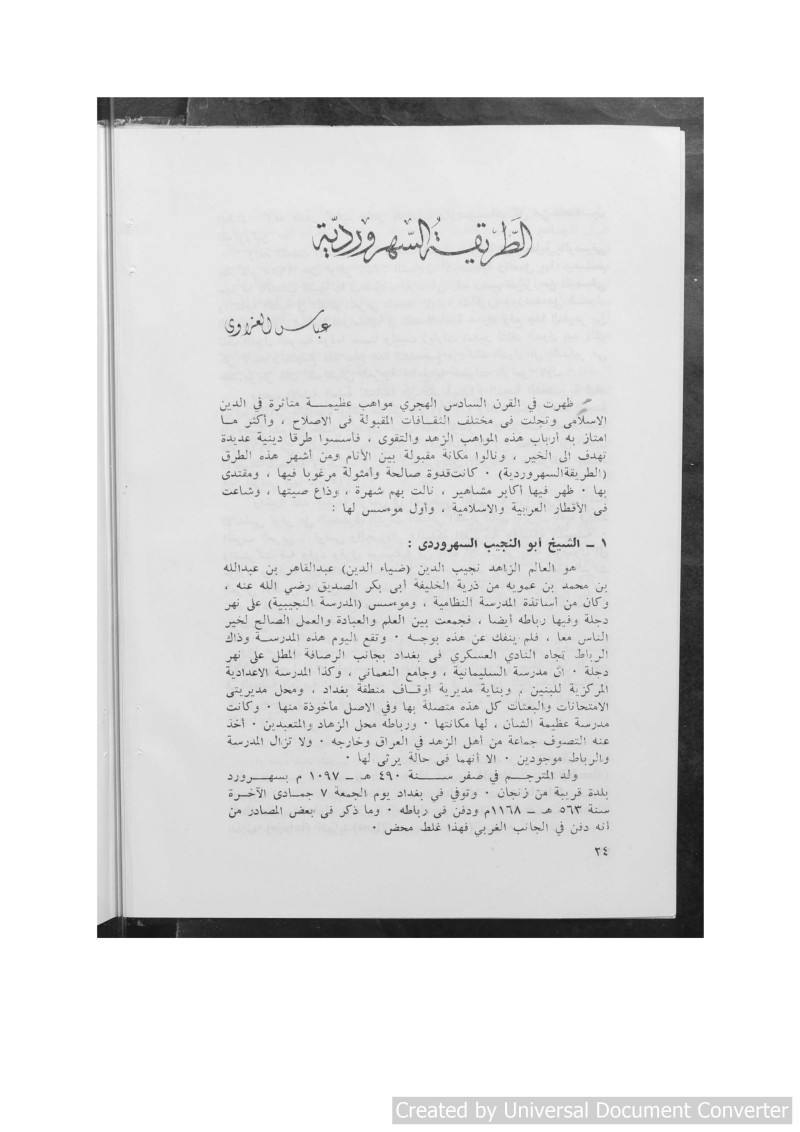 الطَّريقة السّهرورديّة
عباس العزاوي
ظهرت في القرن السادس الهجري مواهب عظيمـــة متأثرة في الدين
الاسلامى وتجلت فى مختلف الثقــافات المقبولة فى الاصلاح ، وأكثر مــا
امتاز به أرباب هذه المواهب الزهد والتقوى ، فأسسوا طرقا دينية عديدة
تهدف الى الخير ، ونالوا مكانة مقبولة بين الأنام ومن أشهر هذه الطرق
(الطريقةالسهروردية) ٠ كانت قدوة صالحة وأمثولة مرغوبا فيها ، ومقتدى
بها ٠ ظهر فيها أكابر مشاهير ، نالت بهم شهرة ، وذاع صيتها ، وشاعت
فى الأقطار العربية والاسلامية ، وأول موءسس لها :
١ ــ الشيخ أبو النجيب السهروردى :
هو العالم الزاهد نجيب الدين (ضياء الدين) عبدالقاهر بن عبدالله
بن محمد بن عمويه من ذرية الخليفة أبى بكر الصديق رضي الله عنه ،
وكان من أساتذة المدرسة النظامية ، وموءسس (المدرسة النجيبية) على نهر
دجلة وفيها رباطه أيضا ، فجمعت بين العلم والعبادة والعمل الصالح لخير
الناس معا ، فلم ينفك عن هذه بوجــه ٠ وتقع اليوم هذه المدرســة وذاك
الرباط تجاه النادي العسكري فى بغداد بجانب الرصافة المطل على نهر
دجلة ٠ انّ مدرسة السليمانية ، وجامع النعماني ، وكذا المدرسة الاعدادية
المركزية للبنين ، وبناية مديرية أوقــاف منطقة بغداد ، ومحل مديريتى
الامتحانات والبعثات كل هذه متصلة بها وفي الاصل مأخوذة منها ٠ وكانت
مدرسة عظيمة الشأن ، لها مكانتها ٠ ورباطه محل الزهاد والمتعبدين ٠ أخذ
عنه التصوف جماعة من أهل الزهد في العراق وخارجه ٠ ولا تزال المدرسة
والرباط موجودين ٠ الا أنهما فى حالة يرثى لها ٠
ولد المترجــم في صفر ســـنة ٤٩٠ هـ ــ ١٠٩٧ م بسهــرورد
بلدة قريبة من زنجان ٠ وتوفي في بغداد يوم الجمعة ٧ جمــادى الآخــرة
سنة ٥٦٣ هـ ــ ١١٦٨م ودفن فى رباطه ٠ وما ذكر فى بعض المصادر من
أنه دفن في الجانب الغربي فهذا غلط محض ٠
٢٤
Created by Universal Document Converter